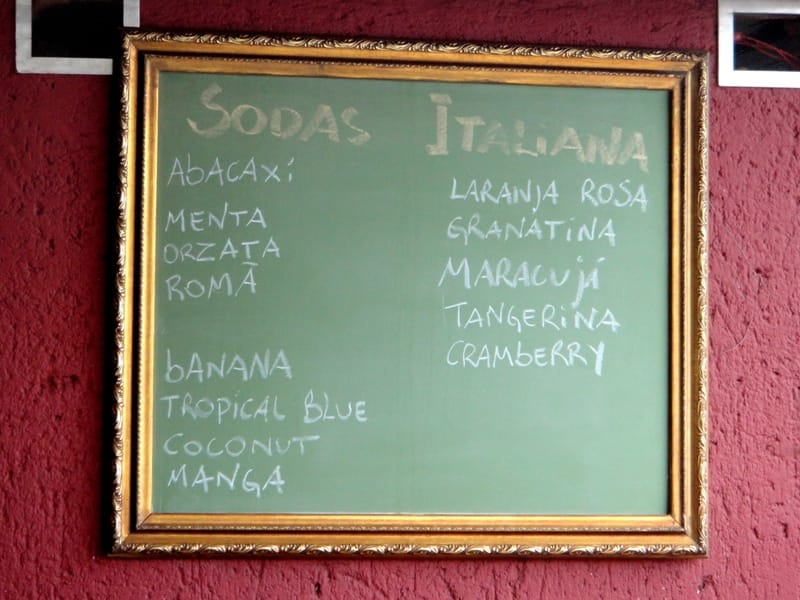 SODAS ITALIANA
ABACAXí
MENTA
ORZATA
ROMÃ
bANANA
TROPICAL BLUE
COCONUT
MANGA
LARANJA ROSA
GRANATiNA
MARACUJÁ
TANGERiNA
CRAMbERRY